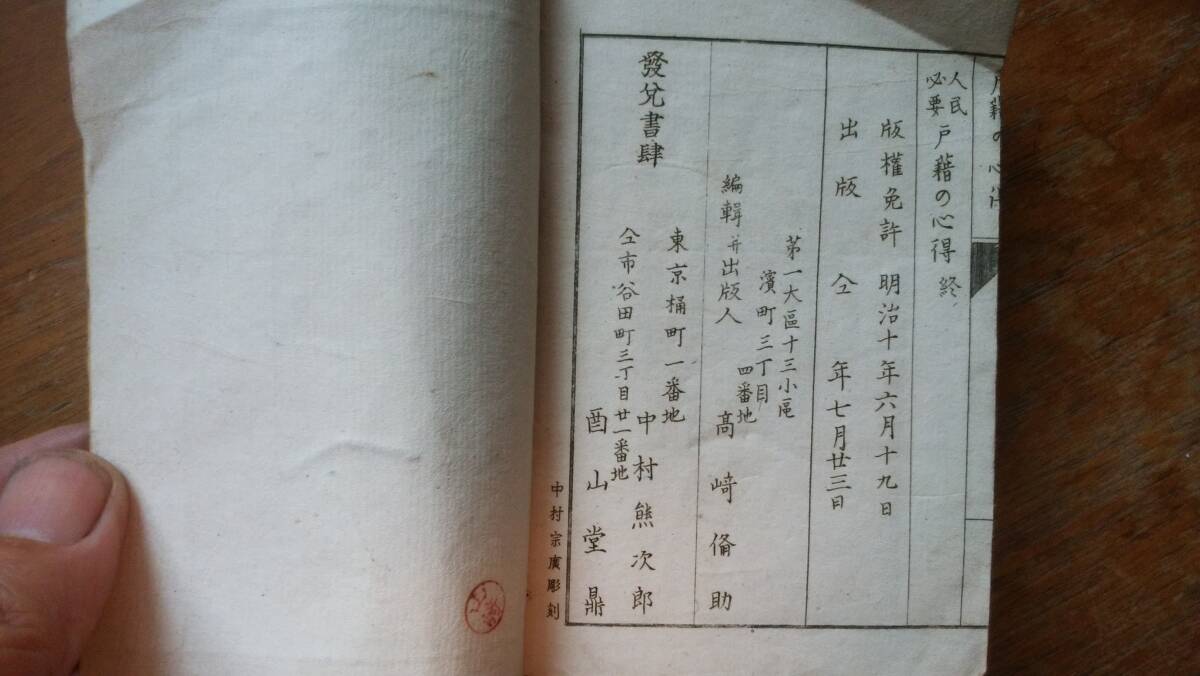 戸籍の心
人民必要戸籍の心得 終
版權免許 明治十年六月十九日
出版 仝年七月廿三日
第一大區十三小區
濱町三丁目
四番地
編輯并出版人 高﨑脩助
發兌書肆
東京桶町一番地
中村熊次郎
仝市谷田町三丁目廿一番地
酉山堂鼎
中村宗廣彫刻